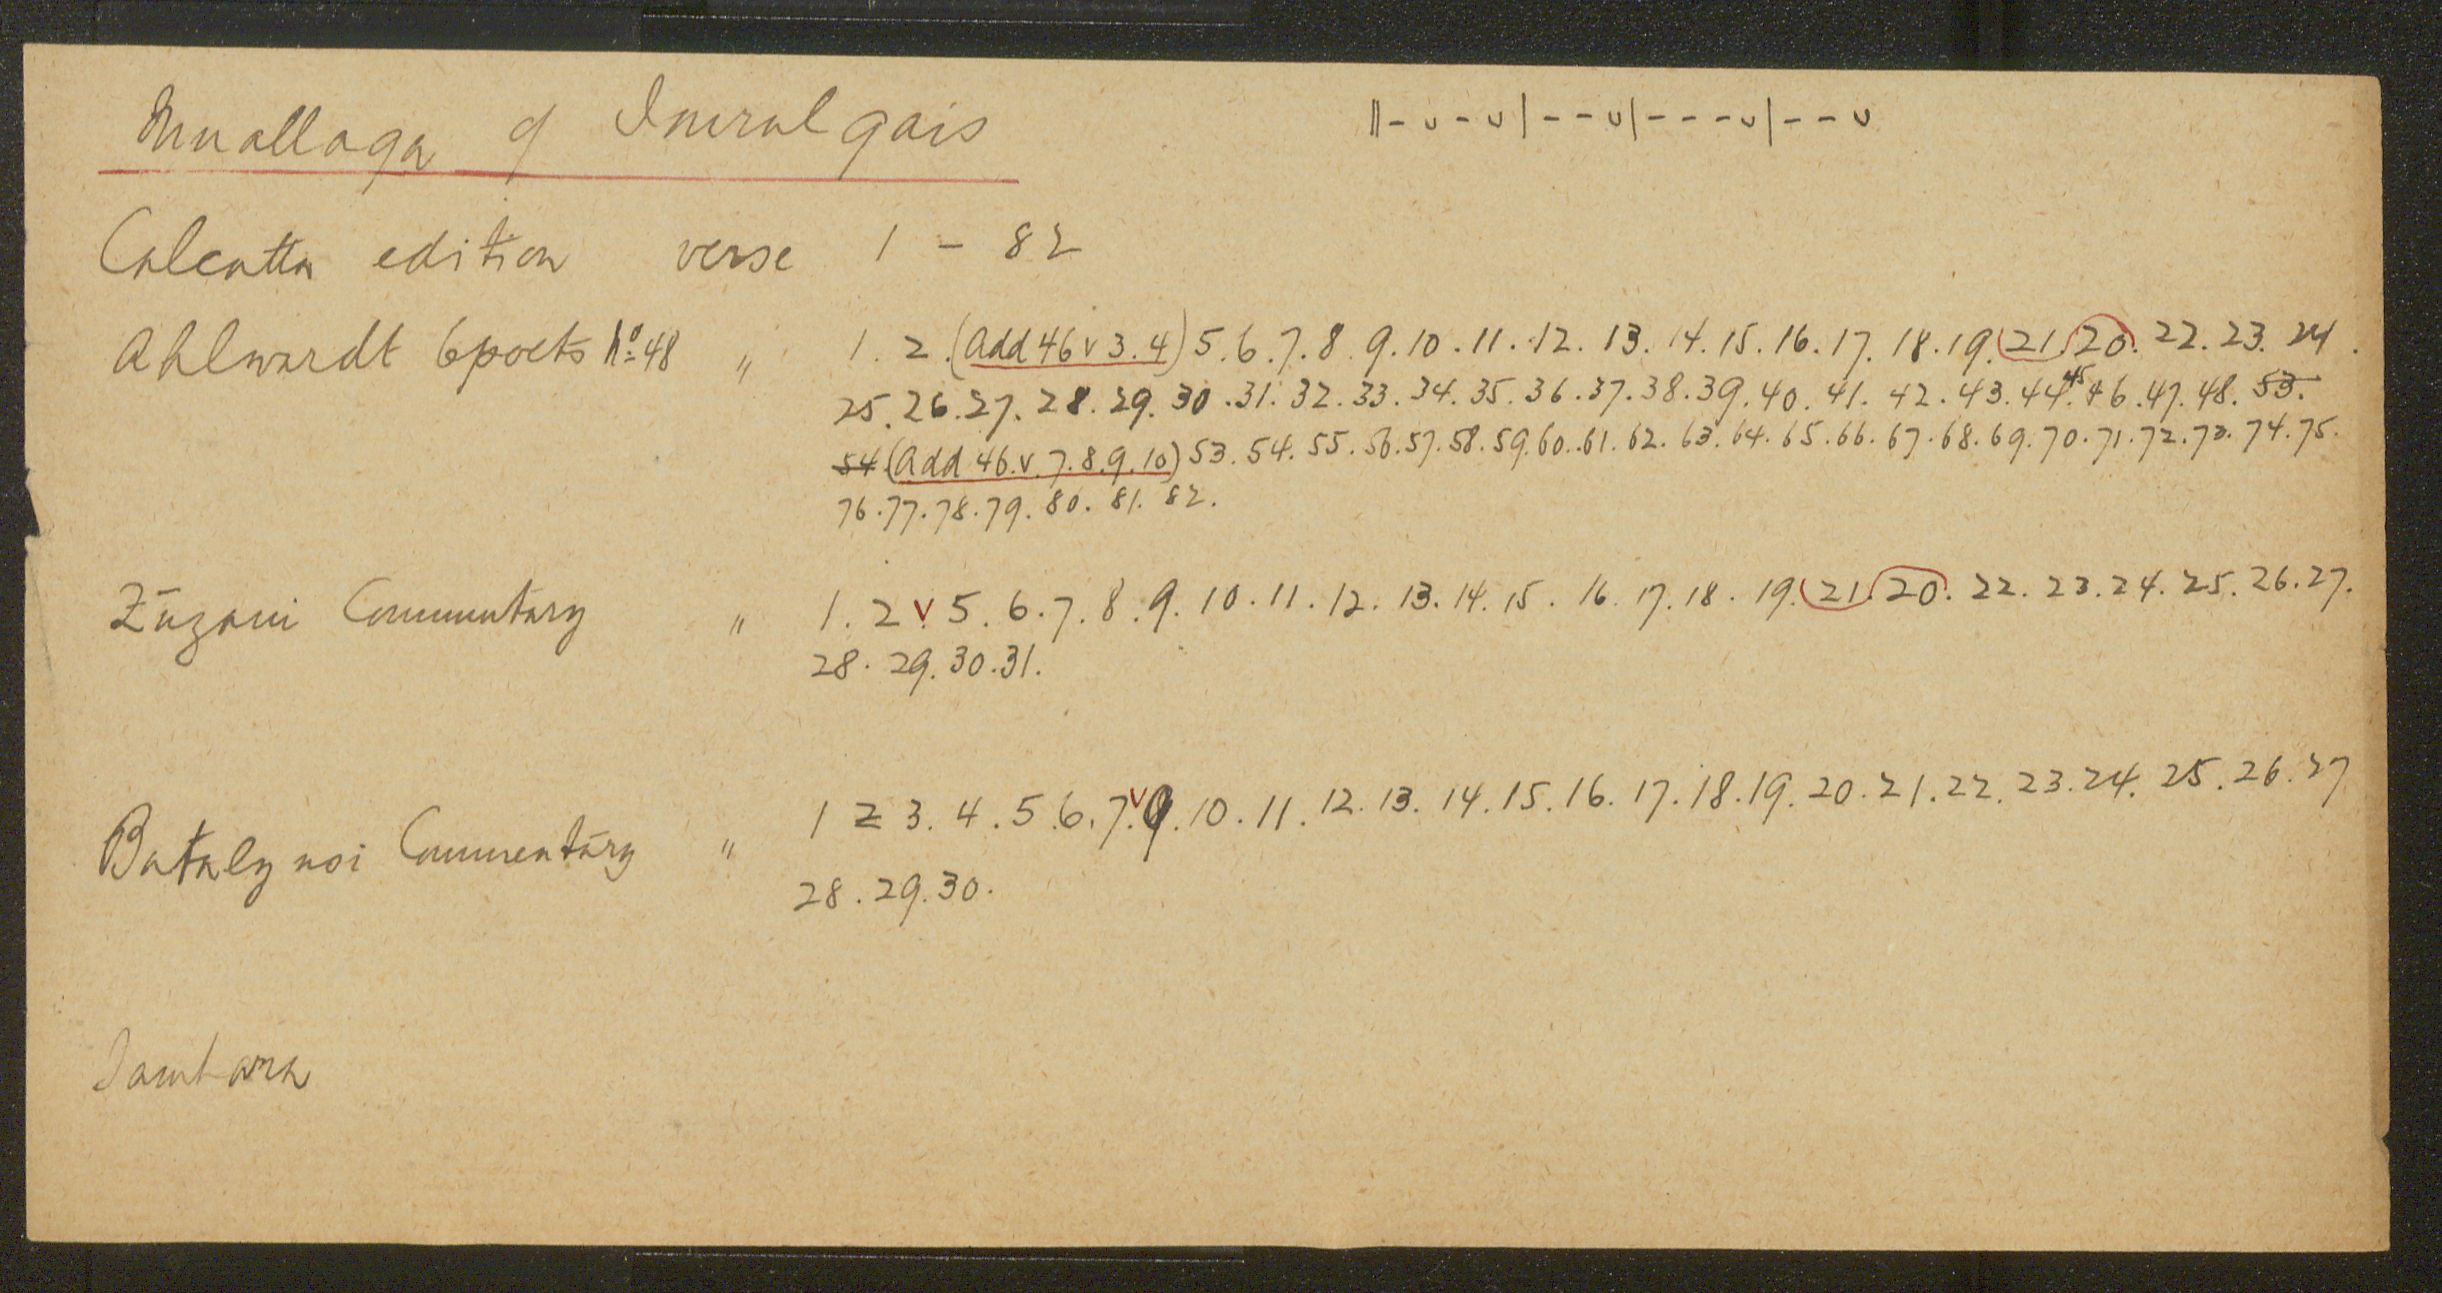 Muallaqa of Imrulqais ‖-ᴗ-ᴗ|--ᴗ|---ᴗ|--ᴗ
Calcutta edition verse 1 - 82
Ahlwardt 6 poets No 48 " 1. 2. (Add 46 v 3. 4) 5. 6. 7. 8. 9. 10. 11. 12. 13. 14. 15. 16. 17. 18. 19. 21. 20. 22. 23. 24.
25. 26. 27. 28. 29. 30. 31. 32. 33. 34. 35. 36. 37. 38. 39. 40. 41. 42. 43. 44. 45 46. 47. 48. 53.
54 (Add 46. v. 7. 8. 9. 10) 53. 54. 55. 56. 57. 58. 59. 60. 61. 62. 63. 64. 65. 66. 67. 68. 69. 70. 71. 72. 73. 74. 75.
76. 77. 78. 79. 80. 81. 82.
Zūzani Commentary " 1. 2 v 5. 6. 7. 8. 9. 10. 11. 12. 13. 14. 15. 16. 17. 18. 19. 21. 20. 22. 23. 24. 25. 26. 27.
28. 29. 30. 31.
Batalynoi Commentary " 1 2 3. 4. 5. 6. 7. v 9. 10. 11. 12. 13. 14. 15. 16. 17. 18. 19. 20. 21. 22. 23. 24. 25. 26. 27
28. 29. 30.
Jamhara